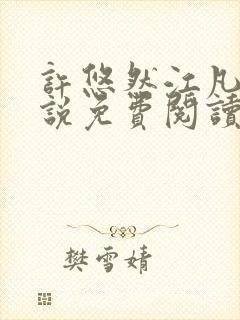 許悠然江凡
說免費閱讀
樊雪婧